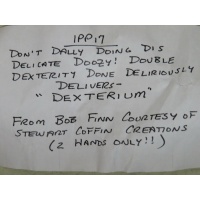 IPP17
DON'T DALLY DOING DIS
DELICATE DOOZY! DOUBLE
DEXTERITY DONE DELIRIOUSLY
DELIVERS-
"DEXTERIUM"
FROM BOB FINN COURTESY OF
STEWART COFFIN CREATIONS
(2 HANDS ONLY!!)